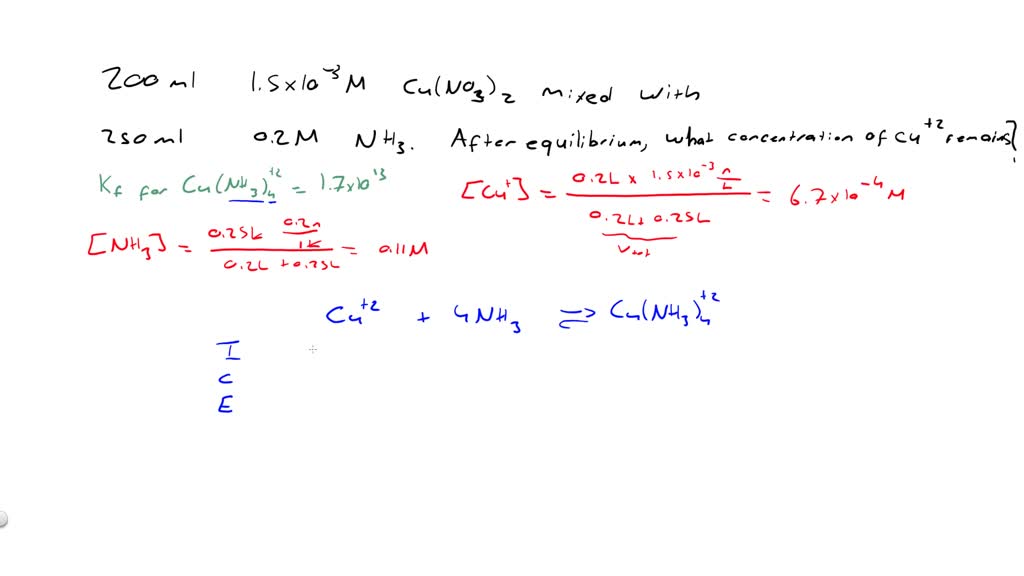 200 ml 1.5×10⁻³ M Cu(NO₃)₂ mixed with
250 ml 0.2M NH₃. After equilibrium, what concentration of Cu⁺² remains?
Kf for Cu(NH₃)₄⁺² = 1.7×10¹³
[Cu⁺] = (0.2L × 1.5×10⁻³ n/L) / (0.2L + 0.25L) = 6.7×10⁻⁴ M
Vtot
[NH₃] = (0.25L 0.2n/1L) / (0.2L + 0.25L) = 0.11M
Cu⁺² + 4NH₃ ⇌ Cu(NH₃)₄⁺²
I
C
E